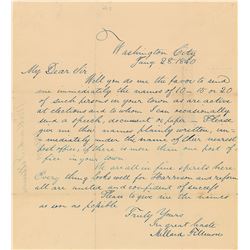 Washington City
Jany 28 1840
My Dear Sir
Will you do me the favor to send
me immediately the names of 10 - 15 or 20
of such persons in your town as are active
at elections and to whom I can occasionally
send a speech, document or paper - Please
give me their names plainly written, and
immediately under the name of their nearest
post office, if there is more than one post of-
fice in your town
We are all in fine spirits here
Every thing looks well for Harrison and reform
all are united and confident of success
Please to give me the names
as soon as possible
Truly Yours
In great haste
Millard Fillmore